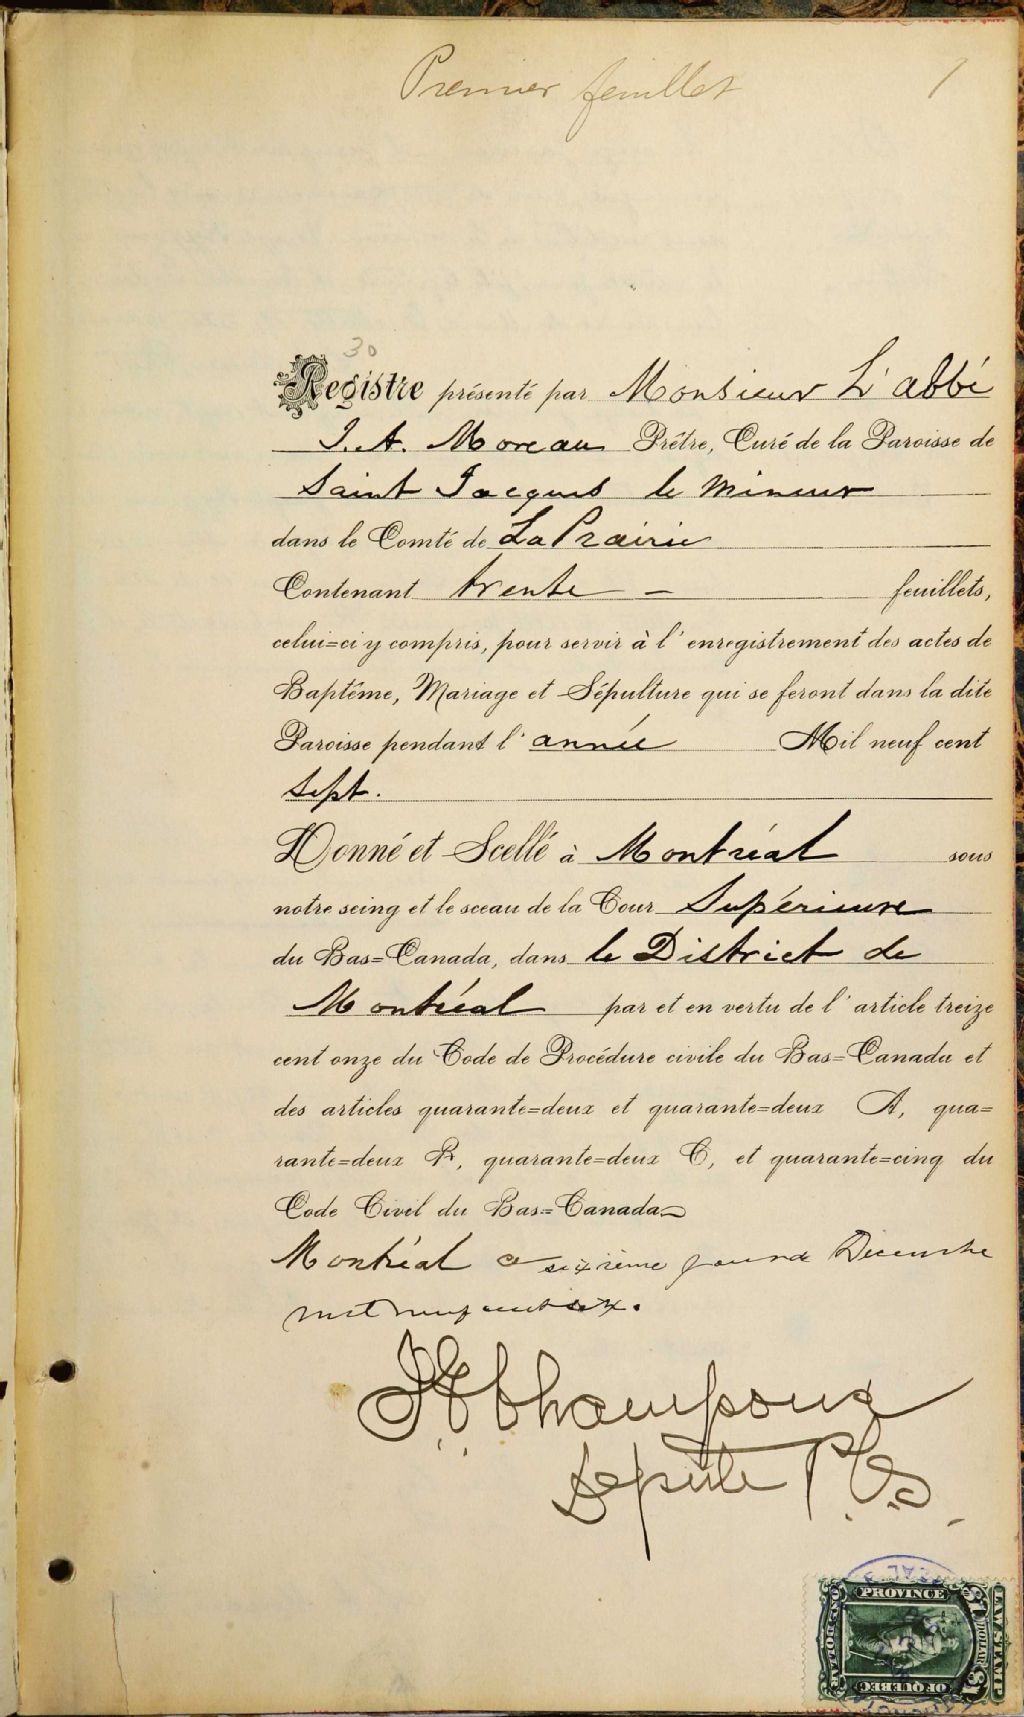 Premier feuillet 1
30
Registre présenté par Monsieur L'abbé
J. A. Moreau Prêtre, Curé de la Paroisse de
Saint Jacques le Mineur
dans le Comté de La Prairie
Contenant trente — feuillets,
celui=ci y compris, pour servir à l'enregistrement des actes de
Baptême, Mariage et Sépulture qui se feront dans la dite
Paroisse pendant l'année Mil neuf cent
Sept.
Donné et Scellé à Montréal sous
notre seing et le sceau de la Cour Supérieure
du Bas=Canada, dans le District de
Montréal par et en vertu de l'article treize
cent onze du Code de Procédure civile du Bas=Canada et
des articles quarante=deux et quarante=deux A, qua=
rante=deux B, quarante=deux C, et quarante=cinq du
Code Civil du Bas=Canada
Montréal ce sixième jour de Décembre
mil neuf cent six.
Champoux
Depute P.C.S.
PROVINCE
OF QUEBEC
LAW STAMP
$1 DOLLAR $1
ONE DOLLAR